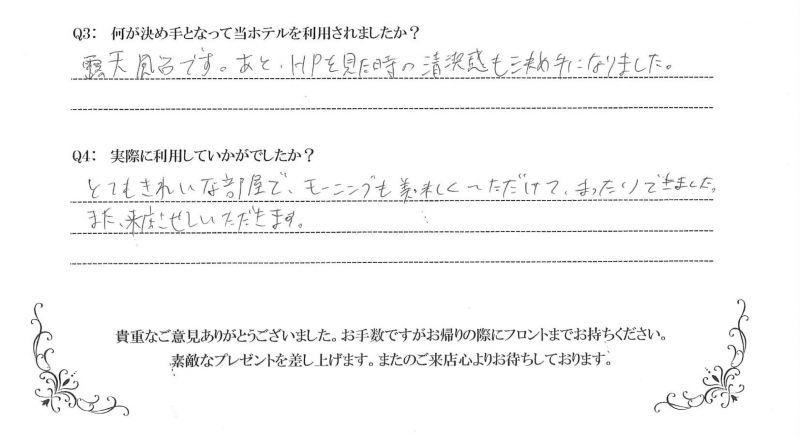 Q3： 何が決め手となって当ホテルを利用されましたか？
露天風呂です。あと、HPを見た時の清潔感も決め手になりました。
Q4： 実際に利用していかがでしたか？
とてもきれいな部屋で、モーニングも美味しくいただけて、まったりできました。
また、来店させていただきます。
貴重なご意見ありがとうございました。お手数ですがお帰りの際にフロントまでお持ちください。
素敵なプレゼントを差し上げます。またのご来店心よりお待ちしております。